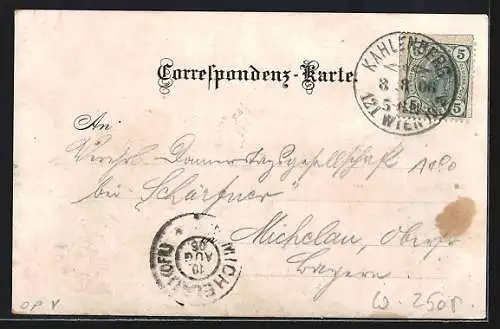 Correspondenz-Karte.
KAHLENBERG
8 8 06
WIEN
5 5
5 5
An
Verehrl. Donnerstagsgesellschaft
bei „Schärfner"
Michelau, Oberfr.
Bayern.
MICHELAU (OFR)
10 AUG 06
OPV
W. 2508